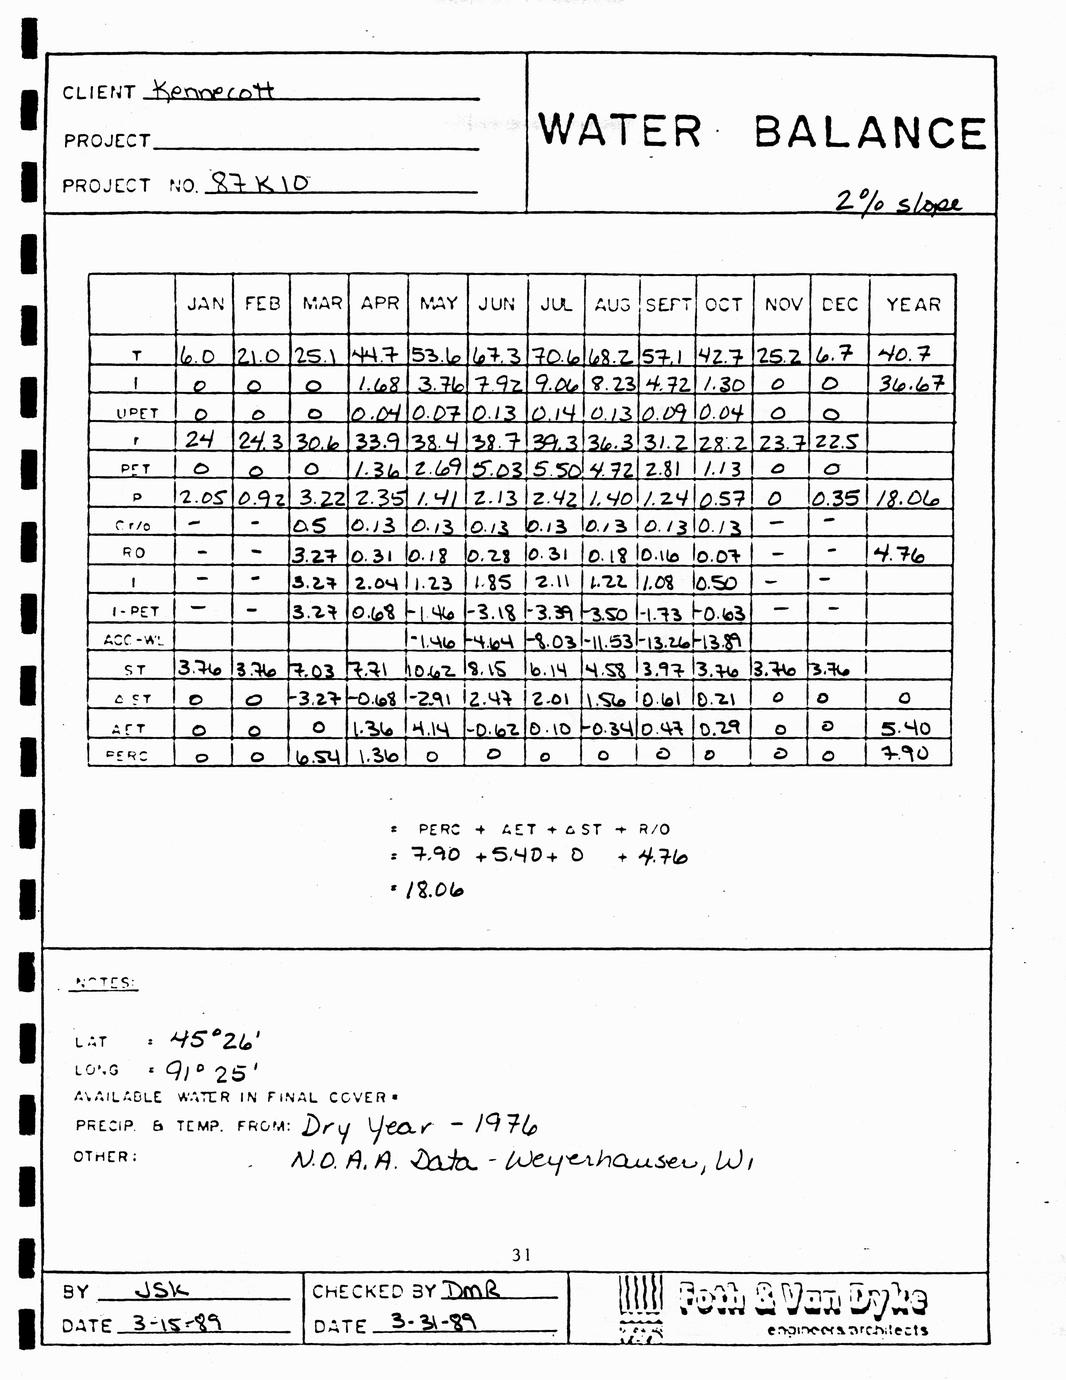 CLIENT Kennecott
PROJECT
PROJECT NO. 87K10
WATER BALANCE
2% slope
JAN FEB MAR APR MAY JUN JUL AUG SEPT OCT NOV DEC YEAR
T 6.0 21.0 25.1 44.7 53.6 67.3 70.6 68.2 57.1 42.7 25.2 6.7 40.7
I 0 0 0 1.68 3.76 7.92 9.06 8.23 4.72 1.30 0 0 36.67
UPET 0 0 0 0.04 0.07 0.13 0.14 0.13 0.09 0.04 0 0
r 24 24.3 30.6 33.9 38.4 38.7 39.3 36.3 31.2 28.2 23.7 22.5
PET 0 0 0 1.36 2.69 5.03 5.50 4.72 2.81 1.13 0 0
P 2.05 0.92 3.22 2.35 1.41 2.13 2.42 1.40 1.24 0.57 0 0.35 18.06
Cr/o - - 0.5 0.13 0.13 0.13 0.13 0.13 0.13 0.13 - -
RO - - 3.27 0.31 0.18 0.28 0.31 0.18 0.16 0.07 - - 4.76
I - - 3.27 2.04 1.23 1.85 2.11 1.22 1.08 0.50 - -
I-PET - - 3.27 0.68 -1.46 -3.18 -3.39 -3.50 -1.73 -0.63 - -
ACC-WL -1.46 -4.64 -8.03 -11.53 -13.26 -13.89
ST 3.76 3.76 7.03 7.71 10.62 8.15 6.14 4.58 3.97 3.76 3.76 3.76
Δ ST 0 0 -3.27 -0.68 -2.91 2.47 2.01 1.56 0.61 0.21 0 0 0
AET 0 0 0 1.36 4.14 -0.62 0.10 -0.34 0.47 0.29 0 0 5.40
PERC 0 0 6.54 1.36 0 0 0 0 0 0 0 0 7.90
= PERC + AET + Δ ST + R/O
= 7.90 + 5.40 + 0 + 4.76
= 18.06
NOTES:
LAT = 45°26'
LONG = 91° 25'
AVAILABLE WATER IN FINAL COVER =
PRECIP. & TEMP. FROM: Dry Year - 1976
OTHER: N.O.A.A. Data - Weyerhauser, WI
31
BY JSK
DATE 3-15-89
CHECKED BY DMR
DATE 3-31-89
Foth & Van Dyke
engineers architects